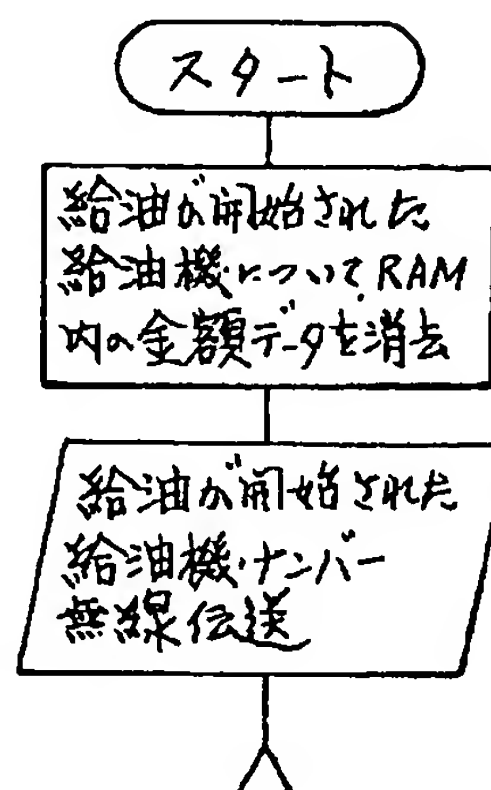 スタート
給油が開始された
給油機について RAM
内の金額データを消去
給油が開始された
給油機・ナンバー
無線伝送